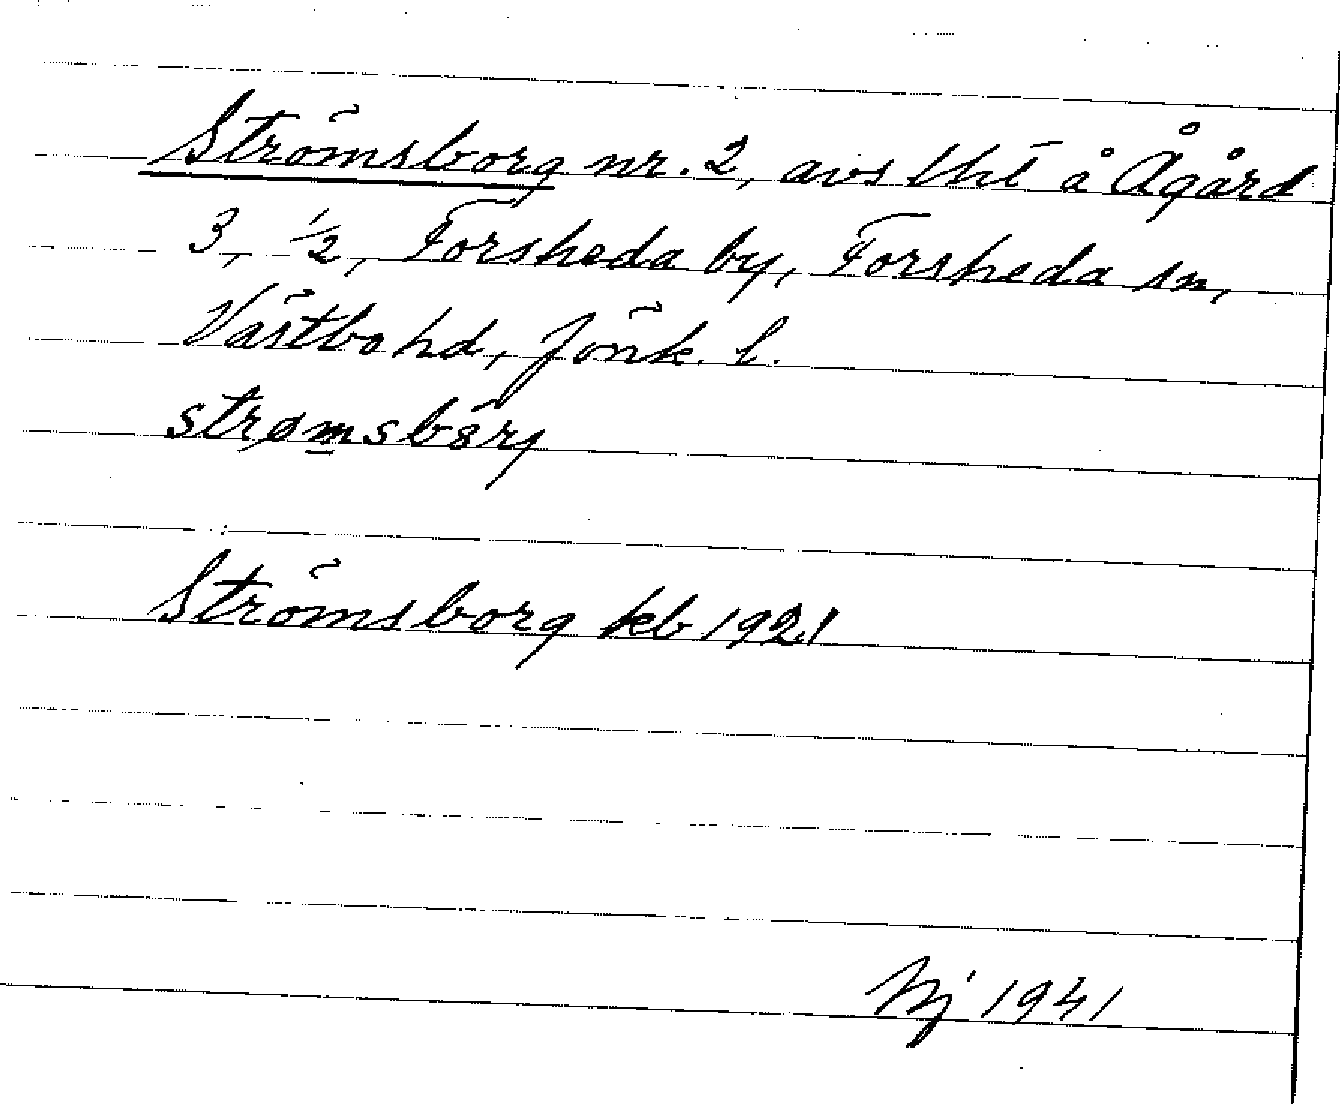 Strömsborg nr. 2, avs lht å Ågård
3, 1/2, Forsheda by, Forsheda sn,
Västbo hd, Jönk. l.
strømsbörj
Strömsborg kb 1921
Nj 1941